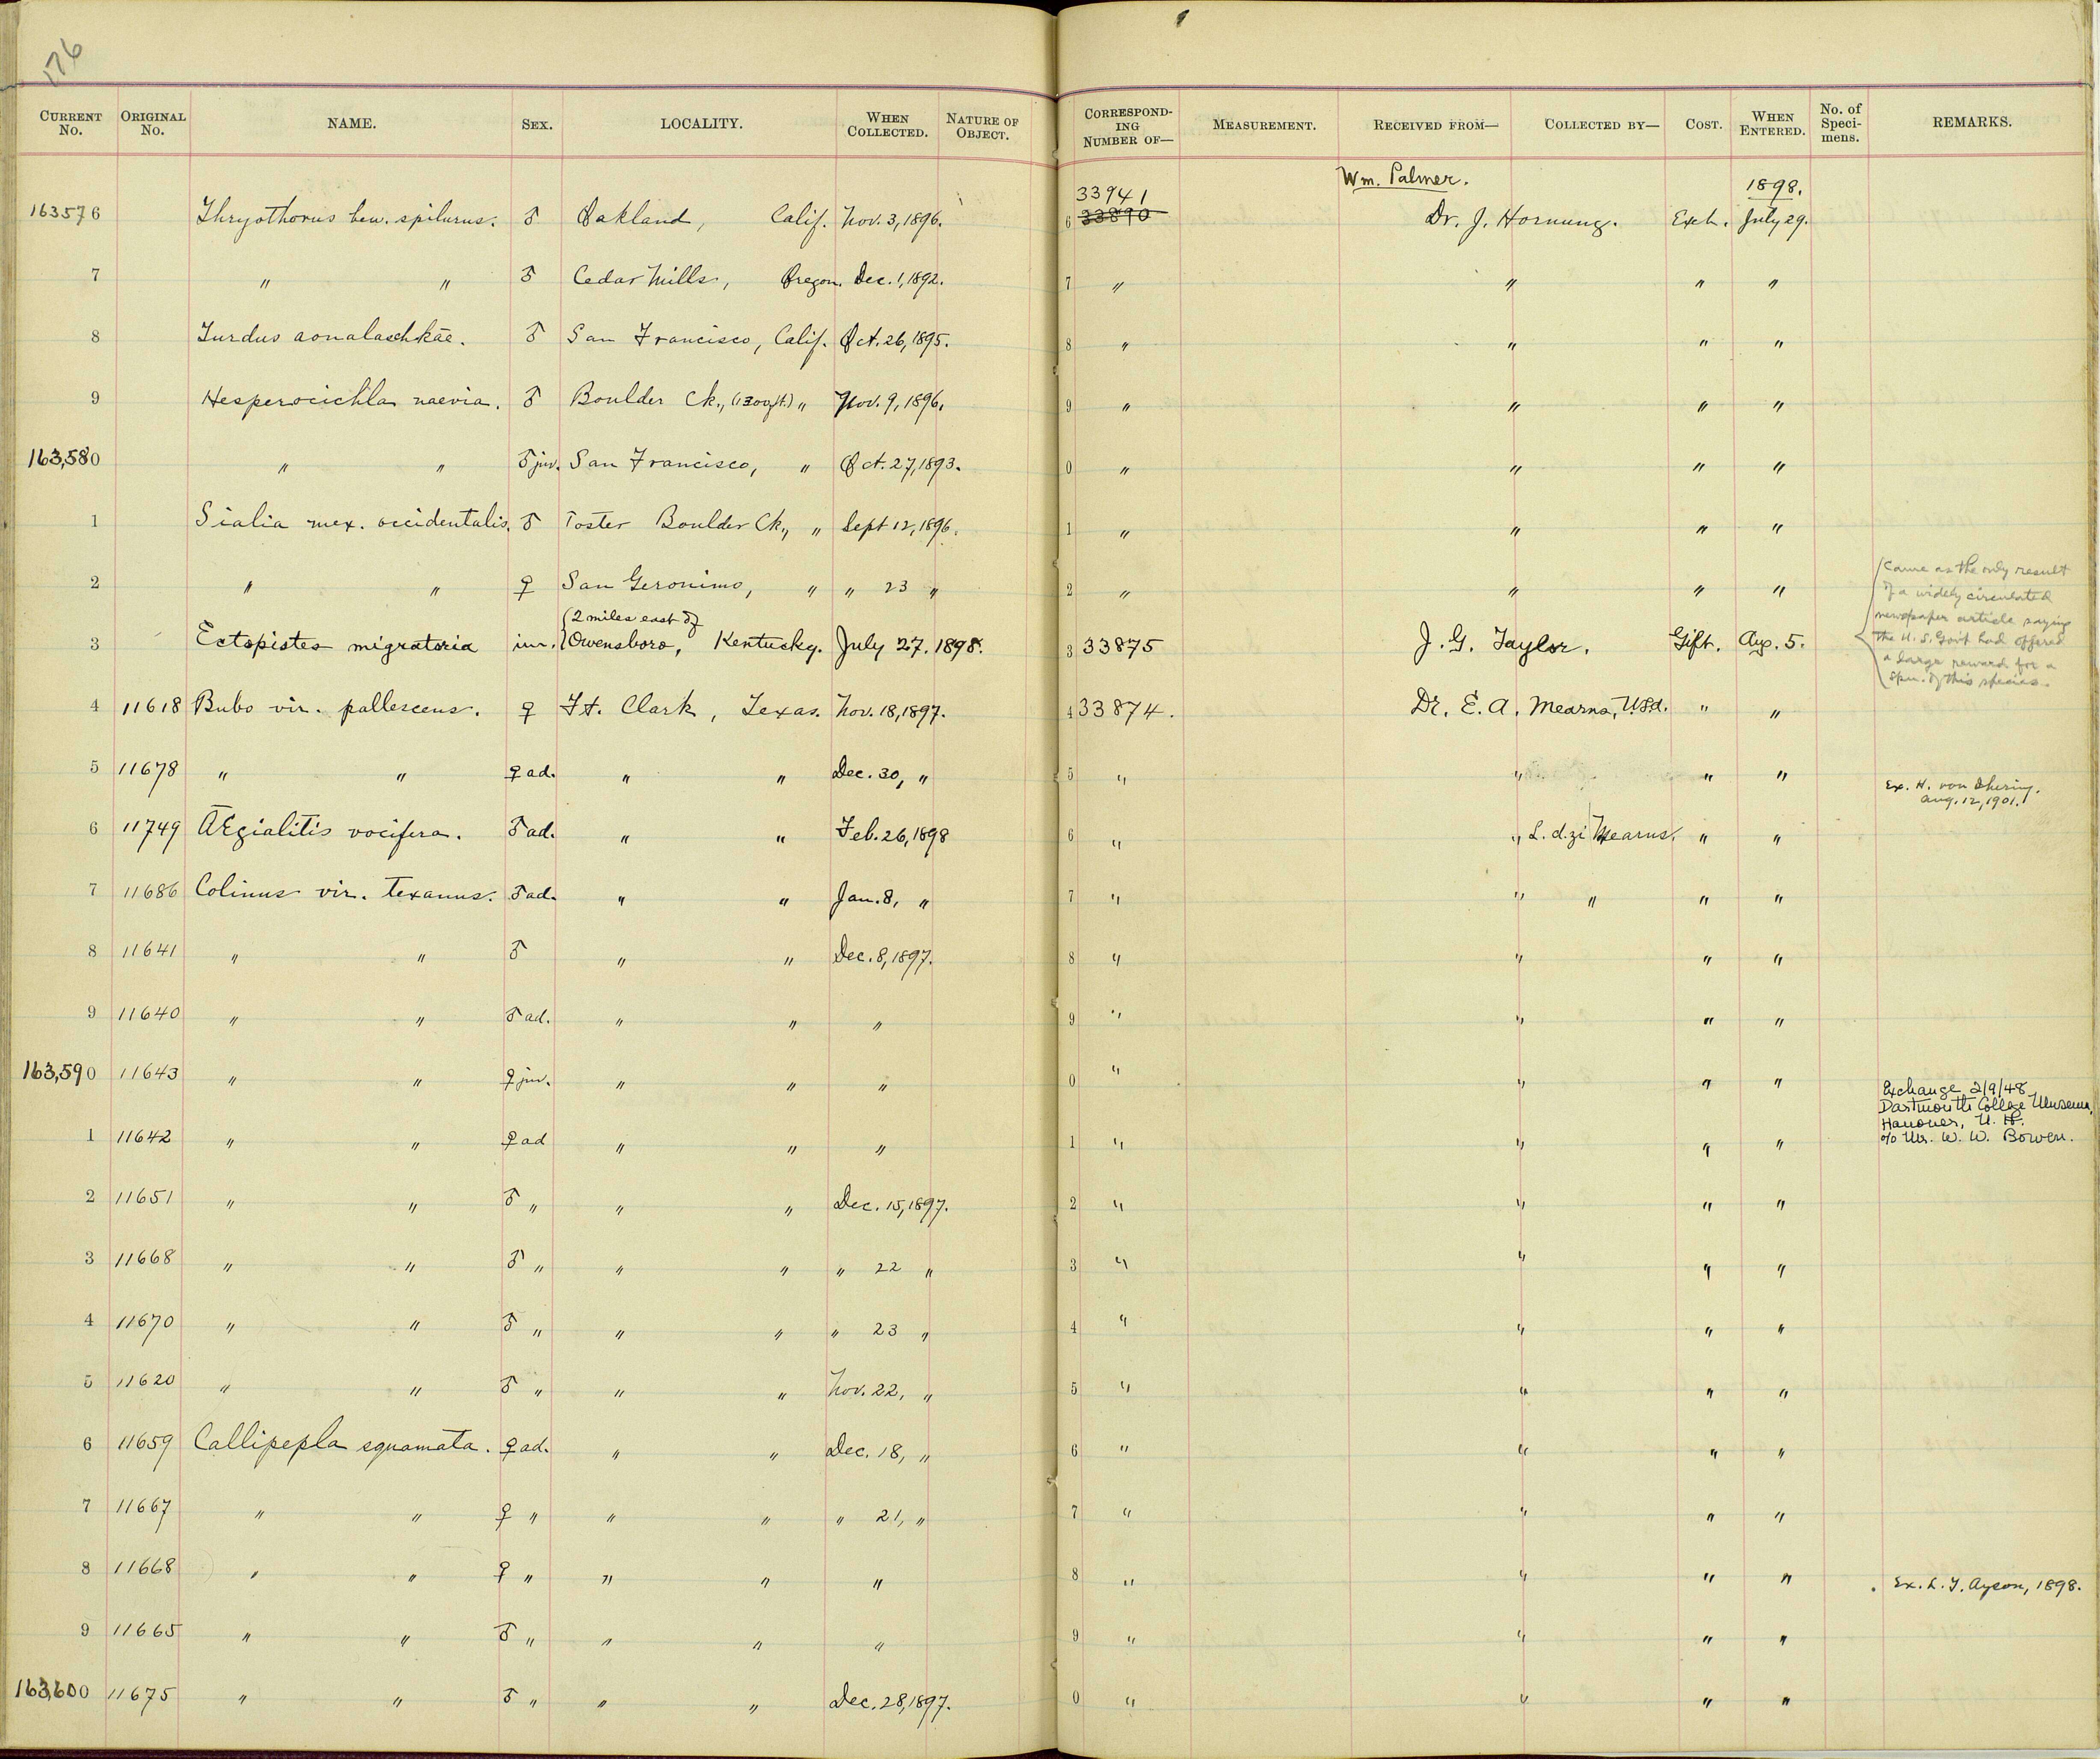 176
CURRENT No. ORIGINAL No. NAME. SEX. LOCALITY. WHEN COLLECTED. NATURE OF OBJECT. CORRESPONDING NUMBER OF— MEASUREMENT. RECEIVED FROM— COLLECTED BY— COST. WHEN ENTERED. No. of Specimens. REMARKS.
Wm. Palmer. 1898.
33941
163576 Thryothorus bew. spilurus. ♂ Oakland, Calif. Nov. 3, 1896. 6 33890 Dr. J. Hornung. Exch. July 29.
7 " " ♂ Cedar Mills, Oregon. Dec. 1, 1892. 7 " " " "
8 Turdus aonalaschkae. ♂ San Francisco, Calif. Oct. 26, 1895. 8 " " " "
9 Hesperocichla naevia. ♂ Boulder Ck., (1300ft.) " Nov. 9, 1896. 9 " " " "
163,580 " " ♂ juv. San Francisco, " Oct. 27, 1893. 0 " " " "
1 Sialia mex. occidentalis. ♂ Foster Boulder Ck., " Sept 12, 1896. 1 " " " "
2 " " ♀ San Geronimo, " " 23 " 2 " " " "
3 Ectopistes migratoria im. {2 miles east of Owensboro, Kentucky. July 27. 1898. 3 33875 J. G. Taylor. Gift. Aug. 5. {Came as the only result
of a widely circulated
newspaper article saying
the U. S. Govt had offered
a large reward for a
spm. of this species.
4 11618 Bubo vir. pallescens. ♀ Ft. Clark, Texas. Nov. 18, 1897. 4 33874. Dr. E. A. Mearns, U.S.A. " "
5 11678 " " ♀ ad. " " Dec. 30, " 5 " " " " Ex. H. von Ihering.
Aug. 12, 1901.
6 11749 Ægialitis vocifera. ♂ ad. " " Feb. 26, 1898 6 " " L. di Z. Mearns. " "
7 11686 Colinus vir. texanus. ♂ ad. " " Jan. 8, " 7 " " " " "
8 11641 " " ♂ " " Dec. 8, 1897. 8 " " " "
9 11640 " " ♂ ad. " " " 9 " " " "
163,590 11643 " " ♀ juv. " " " 0 " " " "
1 11642 " " ♀ ad " " " 1 " " " " Exchange 2/9/48
Dartmouth College Museum,
Hanover, N. H.
c/o Mr. W. W. Bowen.
2 11651 " " ♂ " " " Dec. 15, 1897. 2 " " " "
3 11668 " " ♂ " " " " 22 " 3 " " " "
4 11670 " " ♂ " " " " 23 " 4 " " " "
5 11620 " " ♂ " " " Nov. 22, " 5 " " " "
6 11659 Callipepla squamata. ♀ ad. " " Dec. 18, " 6 " " " "
7 11667 " " ♀ " " " " 21, " 7 " " " "
8 11668 " " ♀ " " " " 8 " " " " Ex. L. F. Ayson, 1898.
9 11665 " " ♂ " " " " 9 " " " "
163,600 11675 " " ♂ " " " Dec. 28, 1897. 0 " " " "